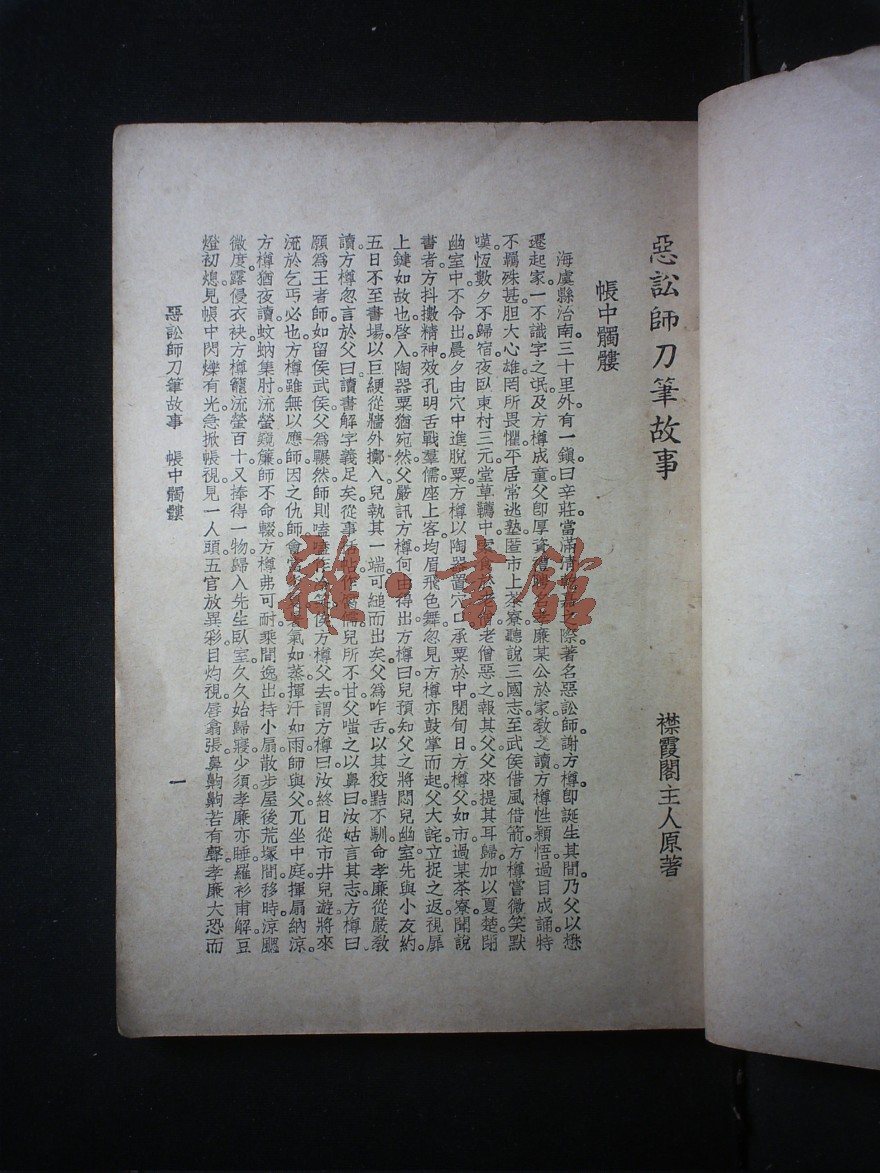 惡訟師刀筆故事
襟霞閣主人原著
帳中髑髏
海虞縣治南三十里外。有一鎭。曰辛莊。當滿清之際。著名惡訟師謝方樽。卽誕生其間。乃父以懋
遷起家。一不識字之氓。及方樽成童。父卽厚資禮聘名孝廉某公於家。敎之讀。方樽性穎悟。過目成誦。特
不羈殊甚。胆大心雄。罔所畏懼。平居常逃塾。匿市上茶寮。聽說三國志。至武侯借風借箭。方樽當微笑默
嘆。恆數夕不歸宿。夜臥東村三元堂草韉中。老僧惡之。報其父。父來提其耳歸。加以夏楚。閉
幽室中。不令出。晨夕由穴中進脫粟。方樽以陶器置穴口。承粟於中。閱旬日。方樽父如市。過某茶寮。聞說
書者。方抖擻精神。效孔明舌戰羣儒。座上客均眉飛色舞。忽見方樽亦鼓掌而起。父大詫。立捉之返。視扉
上鍵如故也。啓入。陶器粟猶宛然。父嚴訊方樽何由得出。方樽曰。兒預知父之將悶兒幽室。先與小友約。
五日不至書場。以巨綆從牆外擲入。兒執其一端。可縋而出矣。父爲咋舌。以其狡黠不馴。命孝廉從嚴敎
讀。方樽忽言於父曰。讀書解字義足矣。從事兒所不甘。父嗤之以鼻曰。汝姑言其志。方樽曰。
願爲王者師。如留侯武侯。父爲囅然。師則嗑嗑作方樽父去。謂方樽曰。汝終日從市井兒遊。將來
流於乞丐必也。方樽雖無以應師。因之仇師。會氣如蒸。揮汗如雨。師與父兀坐中庭。揮扇納涼。
方樽猶夜讀。蚊蚋集肘。流螢窺簾。師不命輟。方樽弗可耐。乘間逸出。持小扇散步屋後荒塚間。移時涼颸
微度。露侵衣袂。方樽籠流螢百十。又捧得一物。歸入先生臥室。久久始歸寢。少須。孝廉亦睡。羅衫甫解。豆
燈初熄。見帳中閃爍有光。急掀帳視。見一人頭。五官放異彩。目灼視。唇翕張。鼻齁齁。苦有聲。孝廉大恐。而
惡訟師刀筆故事　帳中髑髏
一
雅·書館